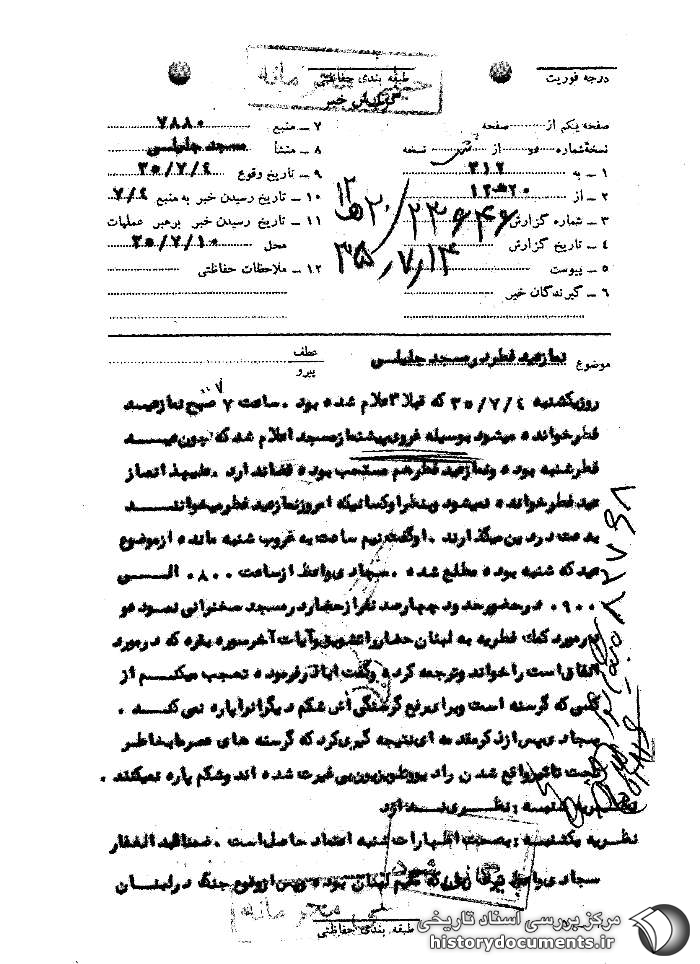 درجه فوریت
طبقه بندی حفاظتی
گزارش خبر
صفحه یکم از صفحه
نسخه شماره دو از شش نسخه
۱ ــ به ۳۱۲
۲ ــ از ۲۰ هـ ۱۲
۳ ــ شماره گزارش ۲۳۶۴۶ / ۲۰ هـ ۱۲
۴ ــ تاریخ گزارش ۳۵٫۷٫۱۴
۵ ــ پیوست
۶ ــ گیرندگان خبر
۷ ــ منبع ۷۸۸۰
۸ ــ منشأ مسجد جلیلی
۹ ــ تاریخ وقوع ۳۵/۷/۴
۱۰ ــ تاریخ رسیدن خبر به منبع ۷/۴
۱۱ ــ تاریخ رسیدن خبر برهبر عملیات
محل ۳۵/۷/۱۰
۱۲ ــ ملاحظات حفاظتی
موضوع نماز عید فطر در مسجد جلیلی
عطف
پیرو
روز یکشنبه ۳۵/۷/۴ که قبلا اعلام شده بود . ساعت ۷ صبح نماز عید
فطر خوانده میشود بوسیله غروی پیشنماز مسجد اعلام شد که چون عید
فطر شنبه بوده و نماز عید فطر هم مستحب بوده قضا ندارد . علیهذا نماز
عید فطر خوانده نمیشود و بنظر او کسانیکه امروز نماز عید فطر میخوانند
بدعت در دین میگذارند . او گفت نیم ساعت به غروب شنبه مانده از موضوع
عید که شنبه بوده مطلع شده . سجادی واعظ از ساعت ۰۸۰۰ الی
۰۹۰۰ در حضور حدود چهارصد نفر از حضار در مسجد سخنرانی نمود و
در مورد کمک فطریه به لبنان حضار را تشویق و آیات آخر سوره بقره که در مورد
انفاق است را خواند و ترجمه کرد و گفت اباذر فرموده تعجب میکنم از
کسی که گرسنه است و برای رفع گرسنگی اش شکم دیگران را پاره نمی کند .
سجادی پس از ذکر مقدمه ای نتیجه گیری کرد که گرسنه های عصر ما بخاطر
تحت تاثیر واقع شدن رادیو و تلویزیون بی غیرت شده اند و شکم پاره نمیکنند .
نظریه شنبه : نظری ندارد
نظریه یکشنبه : بصحت اظهارات شنبه اعتماد حاصل است . ضمنا عبد الغفار
سجادی واعظ که مقیم لبنان بوده و پس از وقوع جنگ در لبنان
طبقه بندی حفاظتی
مرکز بررسی اسناد تاریخی
historydocuments.ir